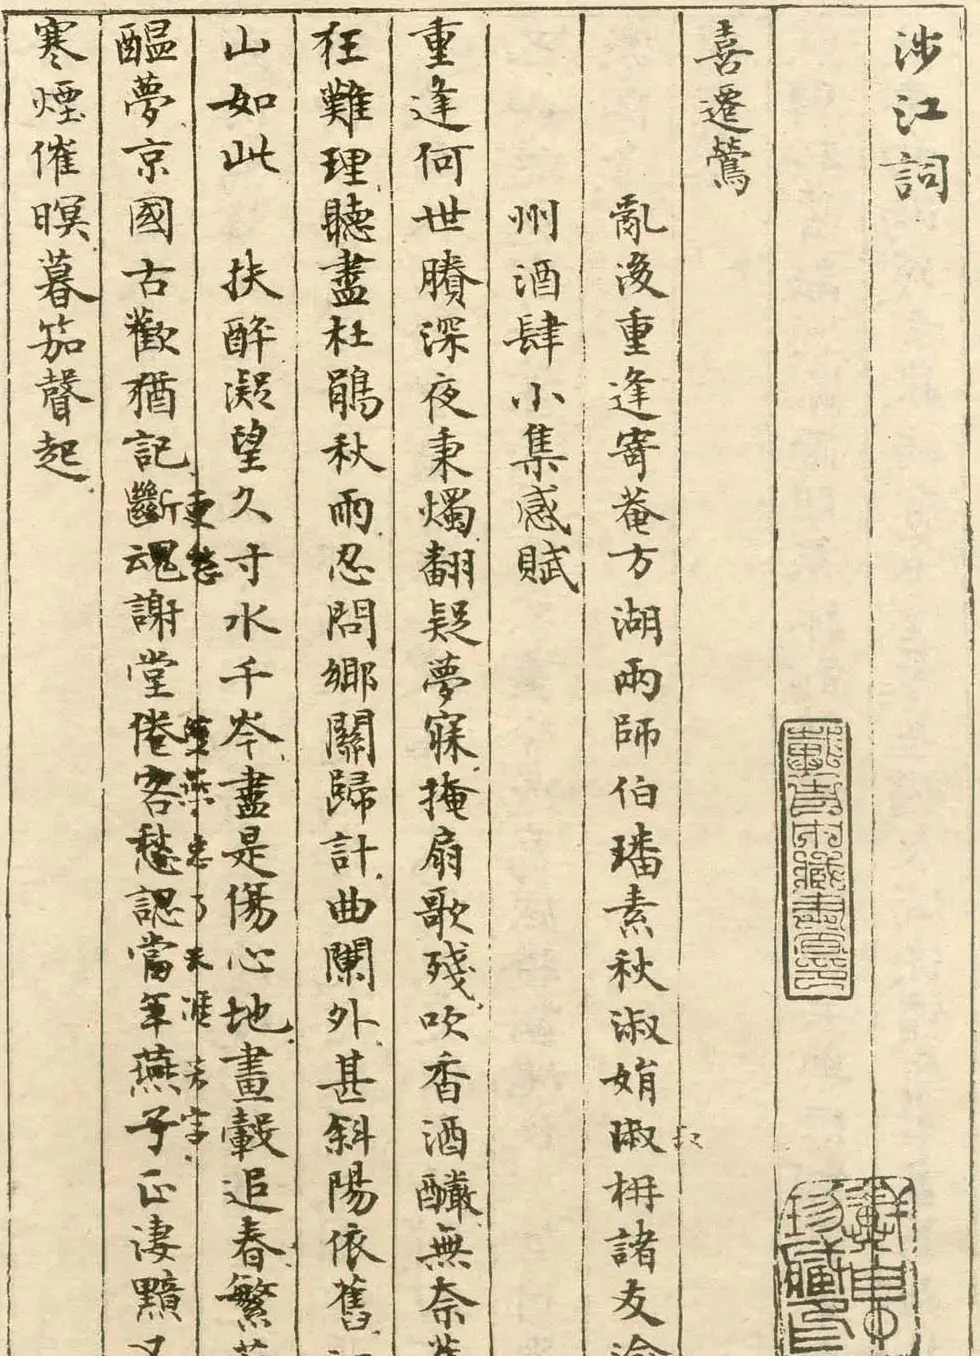 涉江詞
喜遷鶯
亂後重逢寄菴方湖兩師伯璠素秋淑娟淑柟諸友渝
州酒肆小集感賦
重逢何世賸深夜秉燭翻疑夢寐掩扇歌殘吹香酒釅無奈
狂難理聽盡杜鵑秋雨忍問鄉關歸計曲闌外甚斜陽依舊
山如此　扶醉凝望久寸水千岑盡是傷心地畫轂追春繁花
更愁
雙燕忘了天涯芳字
醞夢京國古歡猶記斷魂謝堂倦客愁認當年燕子正淒黯又
寒煙催暝暮笳聲起